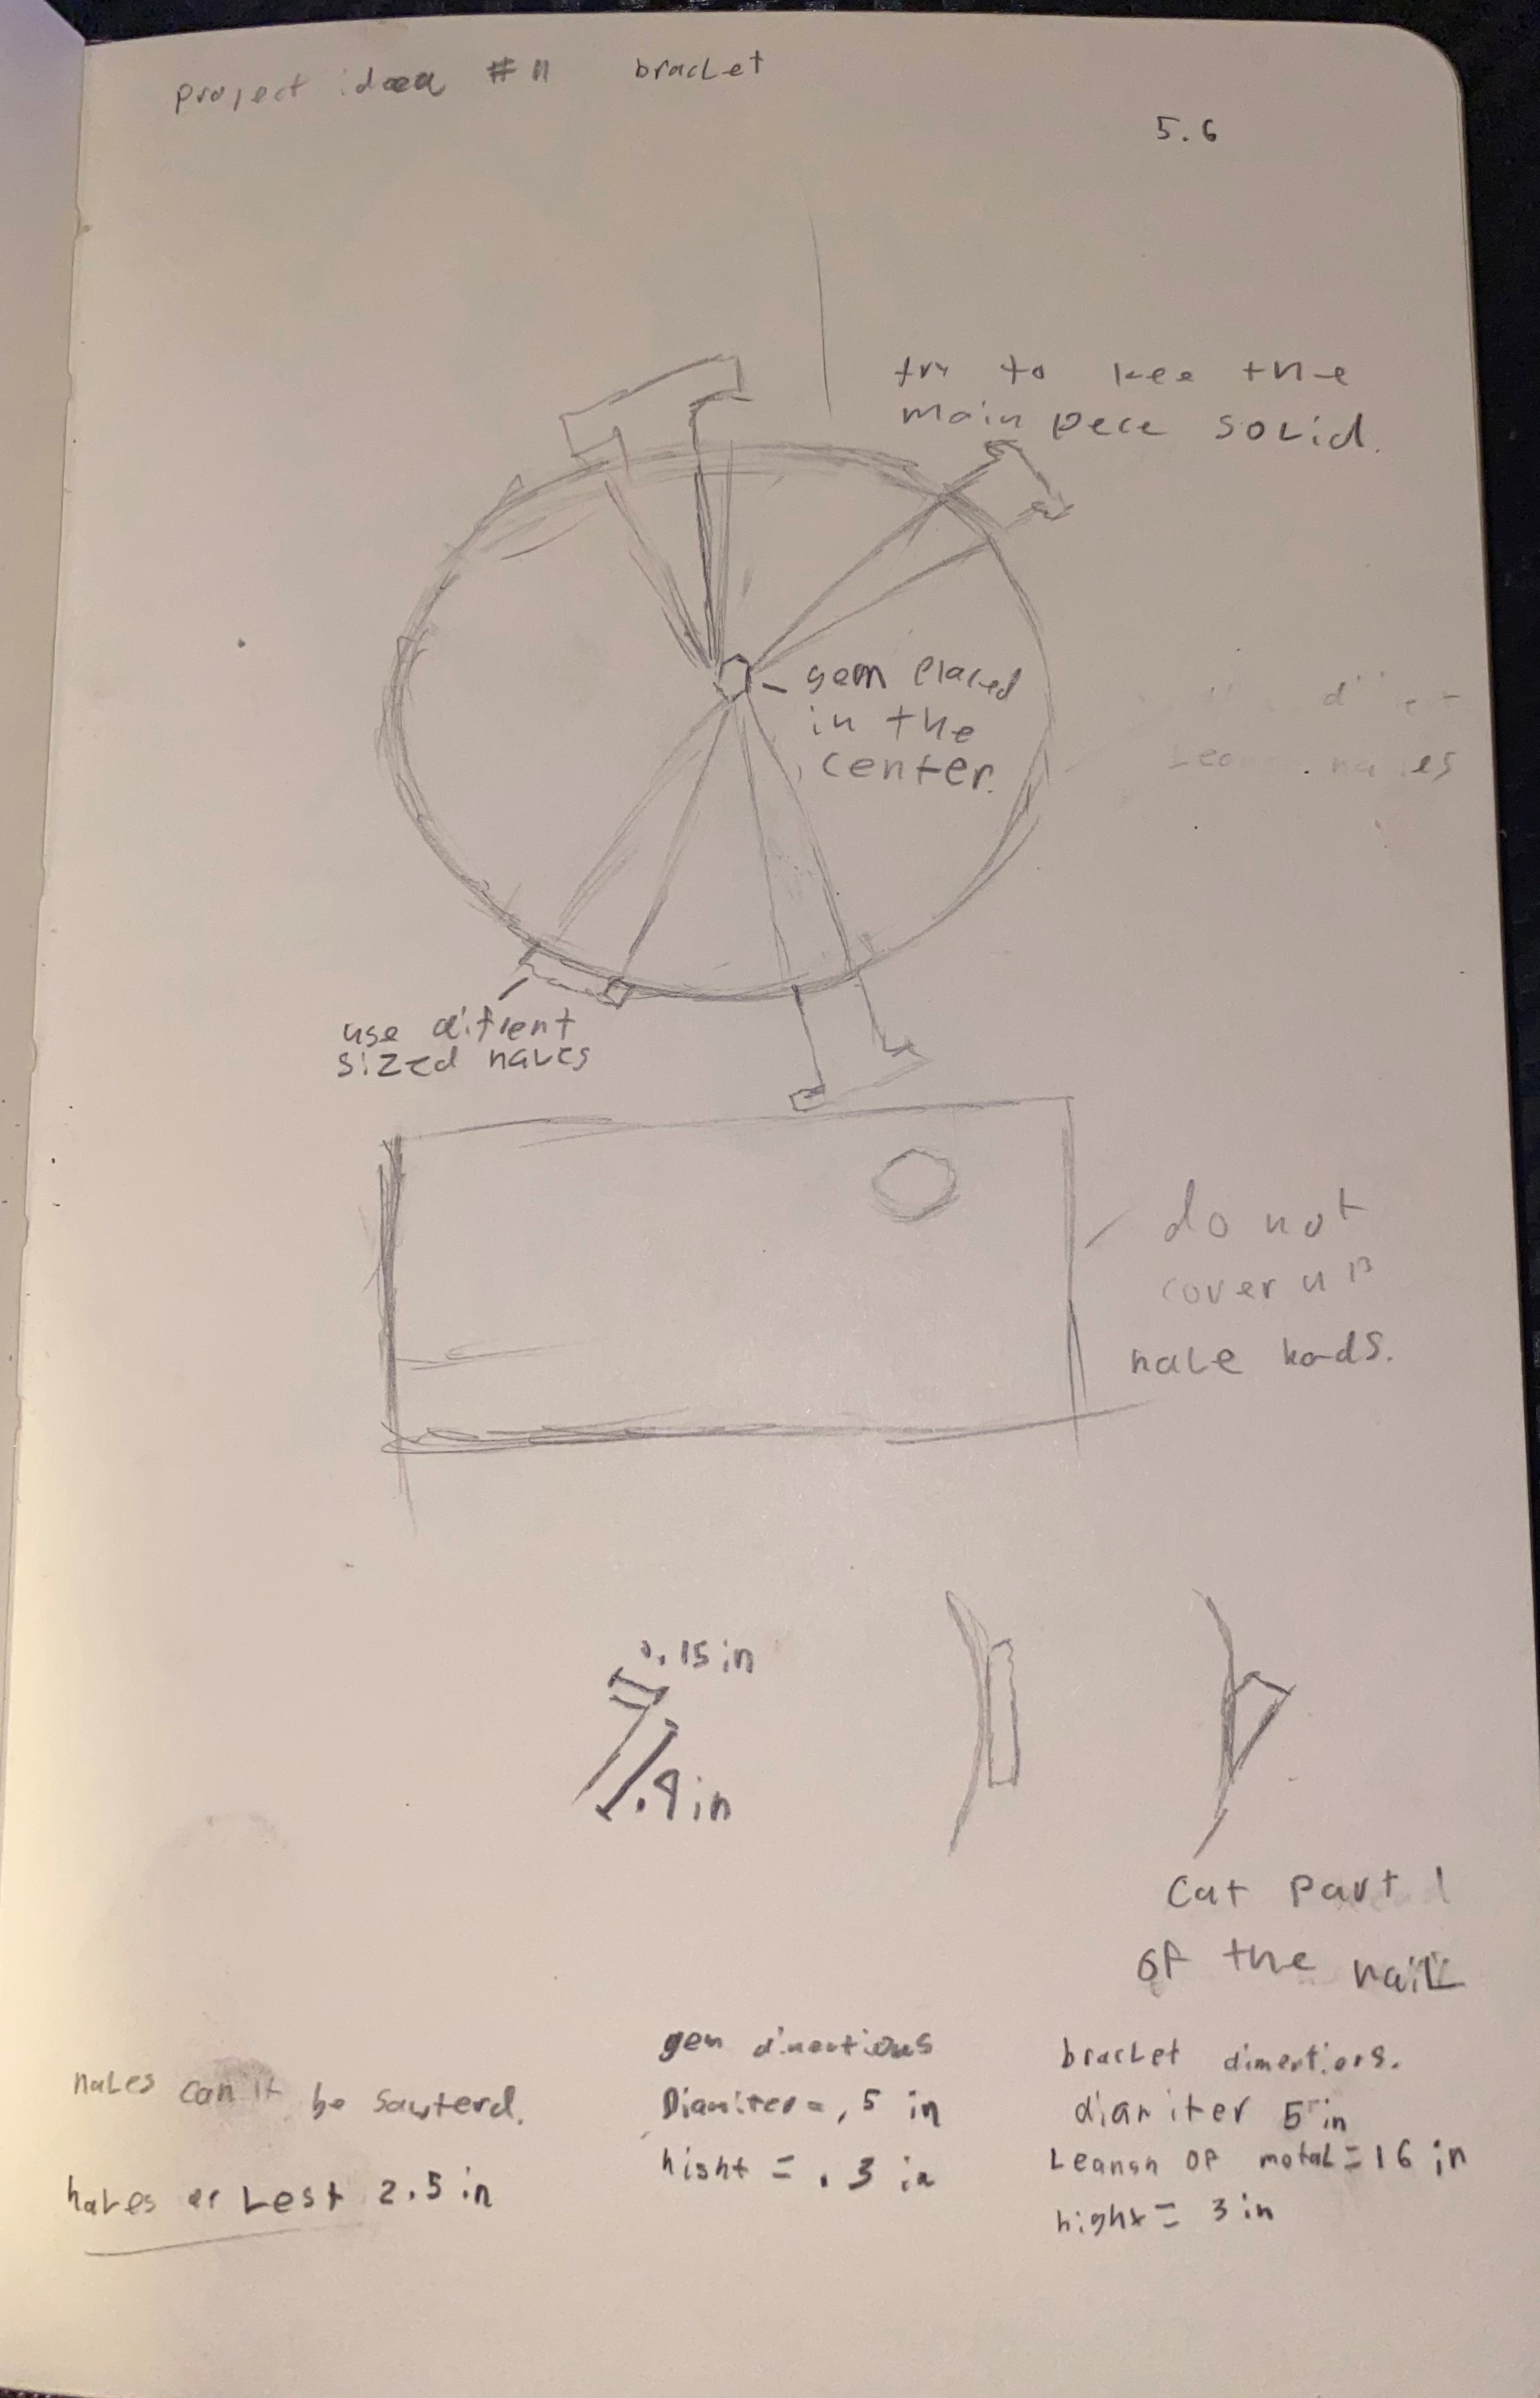 project idea # 11 braclet
5.6
try to kee the
main pece solid.
gem placed
in the
center.
use difrent
sized nales
do not
cover up
nale hads.
.15 in
.9 in
Cut part
of the nail
nales can it be sawterd.
nales at Lest 2.5 in
gem dimentions
Diamiter = .5 in
hight = .3 in
braclet dimentions.
diamiter 5 in
Leangh of metal = 16 in
hight = 3 in